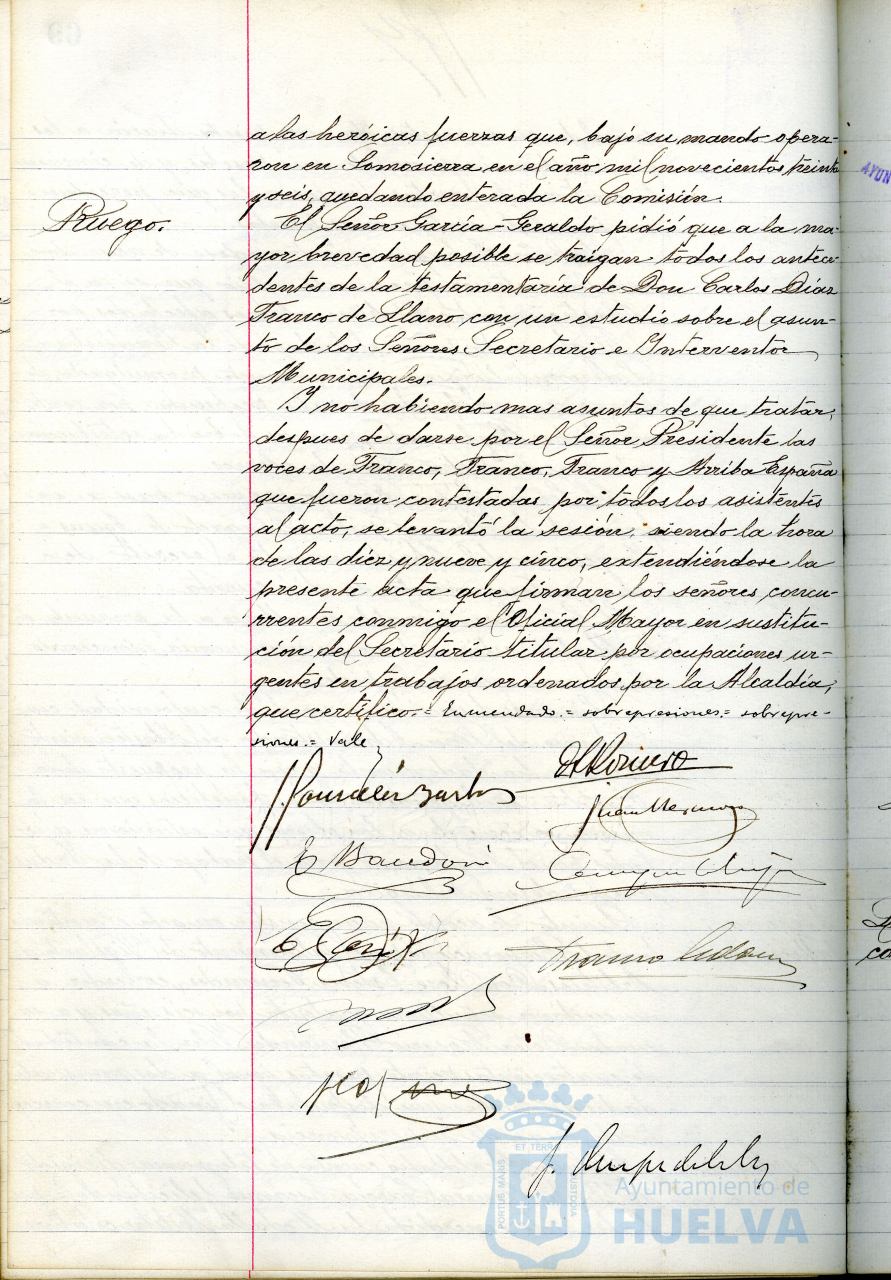 a las heróicas fuerzas que, bajo su mando opera-
ron en Somosierra en el año mil novecientos treinta
y seis, quedando enterada la Comisión.
Ruego.
El Señor García-Geraldo pidió que a la ma-
yor brevedad posible se traigan todos los antece-
dentes de la testamentaría de Don Carlos Díaz
Franco de Llano, con un estudio sobre el asun-
to de los Señores Secretario e Interventor
Municipales.
Y no habiendo mas asuntos de que tratar,
despues de darse por el Señor Presidente las
voces de Franco, Franco, Franco y Arriba España
que fueron contestadas por todos los asistentes
al acto, se levantó la sesión, siendo la hora
de las diez y nueve y cinco, extendiéndose la
presente acta que firman los señores concu-
rrentes conmigo el Oficial Mayor en sustitu-
ción del Secretario titular por ocupaciones ur-
gentes en trabajos ordenados por la Alcaldía,
que certifico.= Enmendado.= sobrepresiones.= sobrepre-
siones.= Vale
E Baudoin
AYUN
PORTUS MARIS
ET TERRÆ
CUSTODIA
Ayuntamiento de
HUELVA